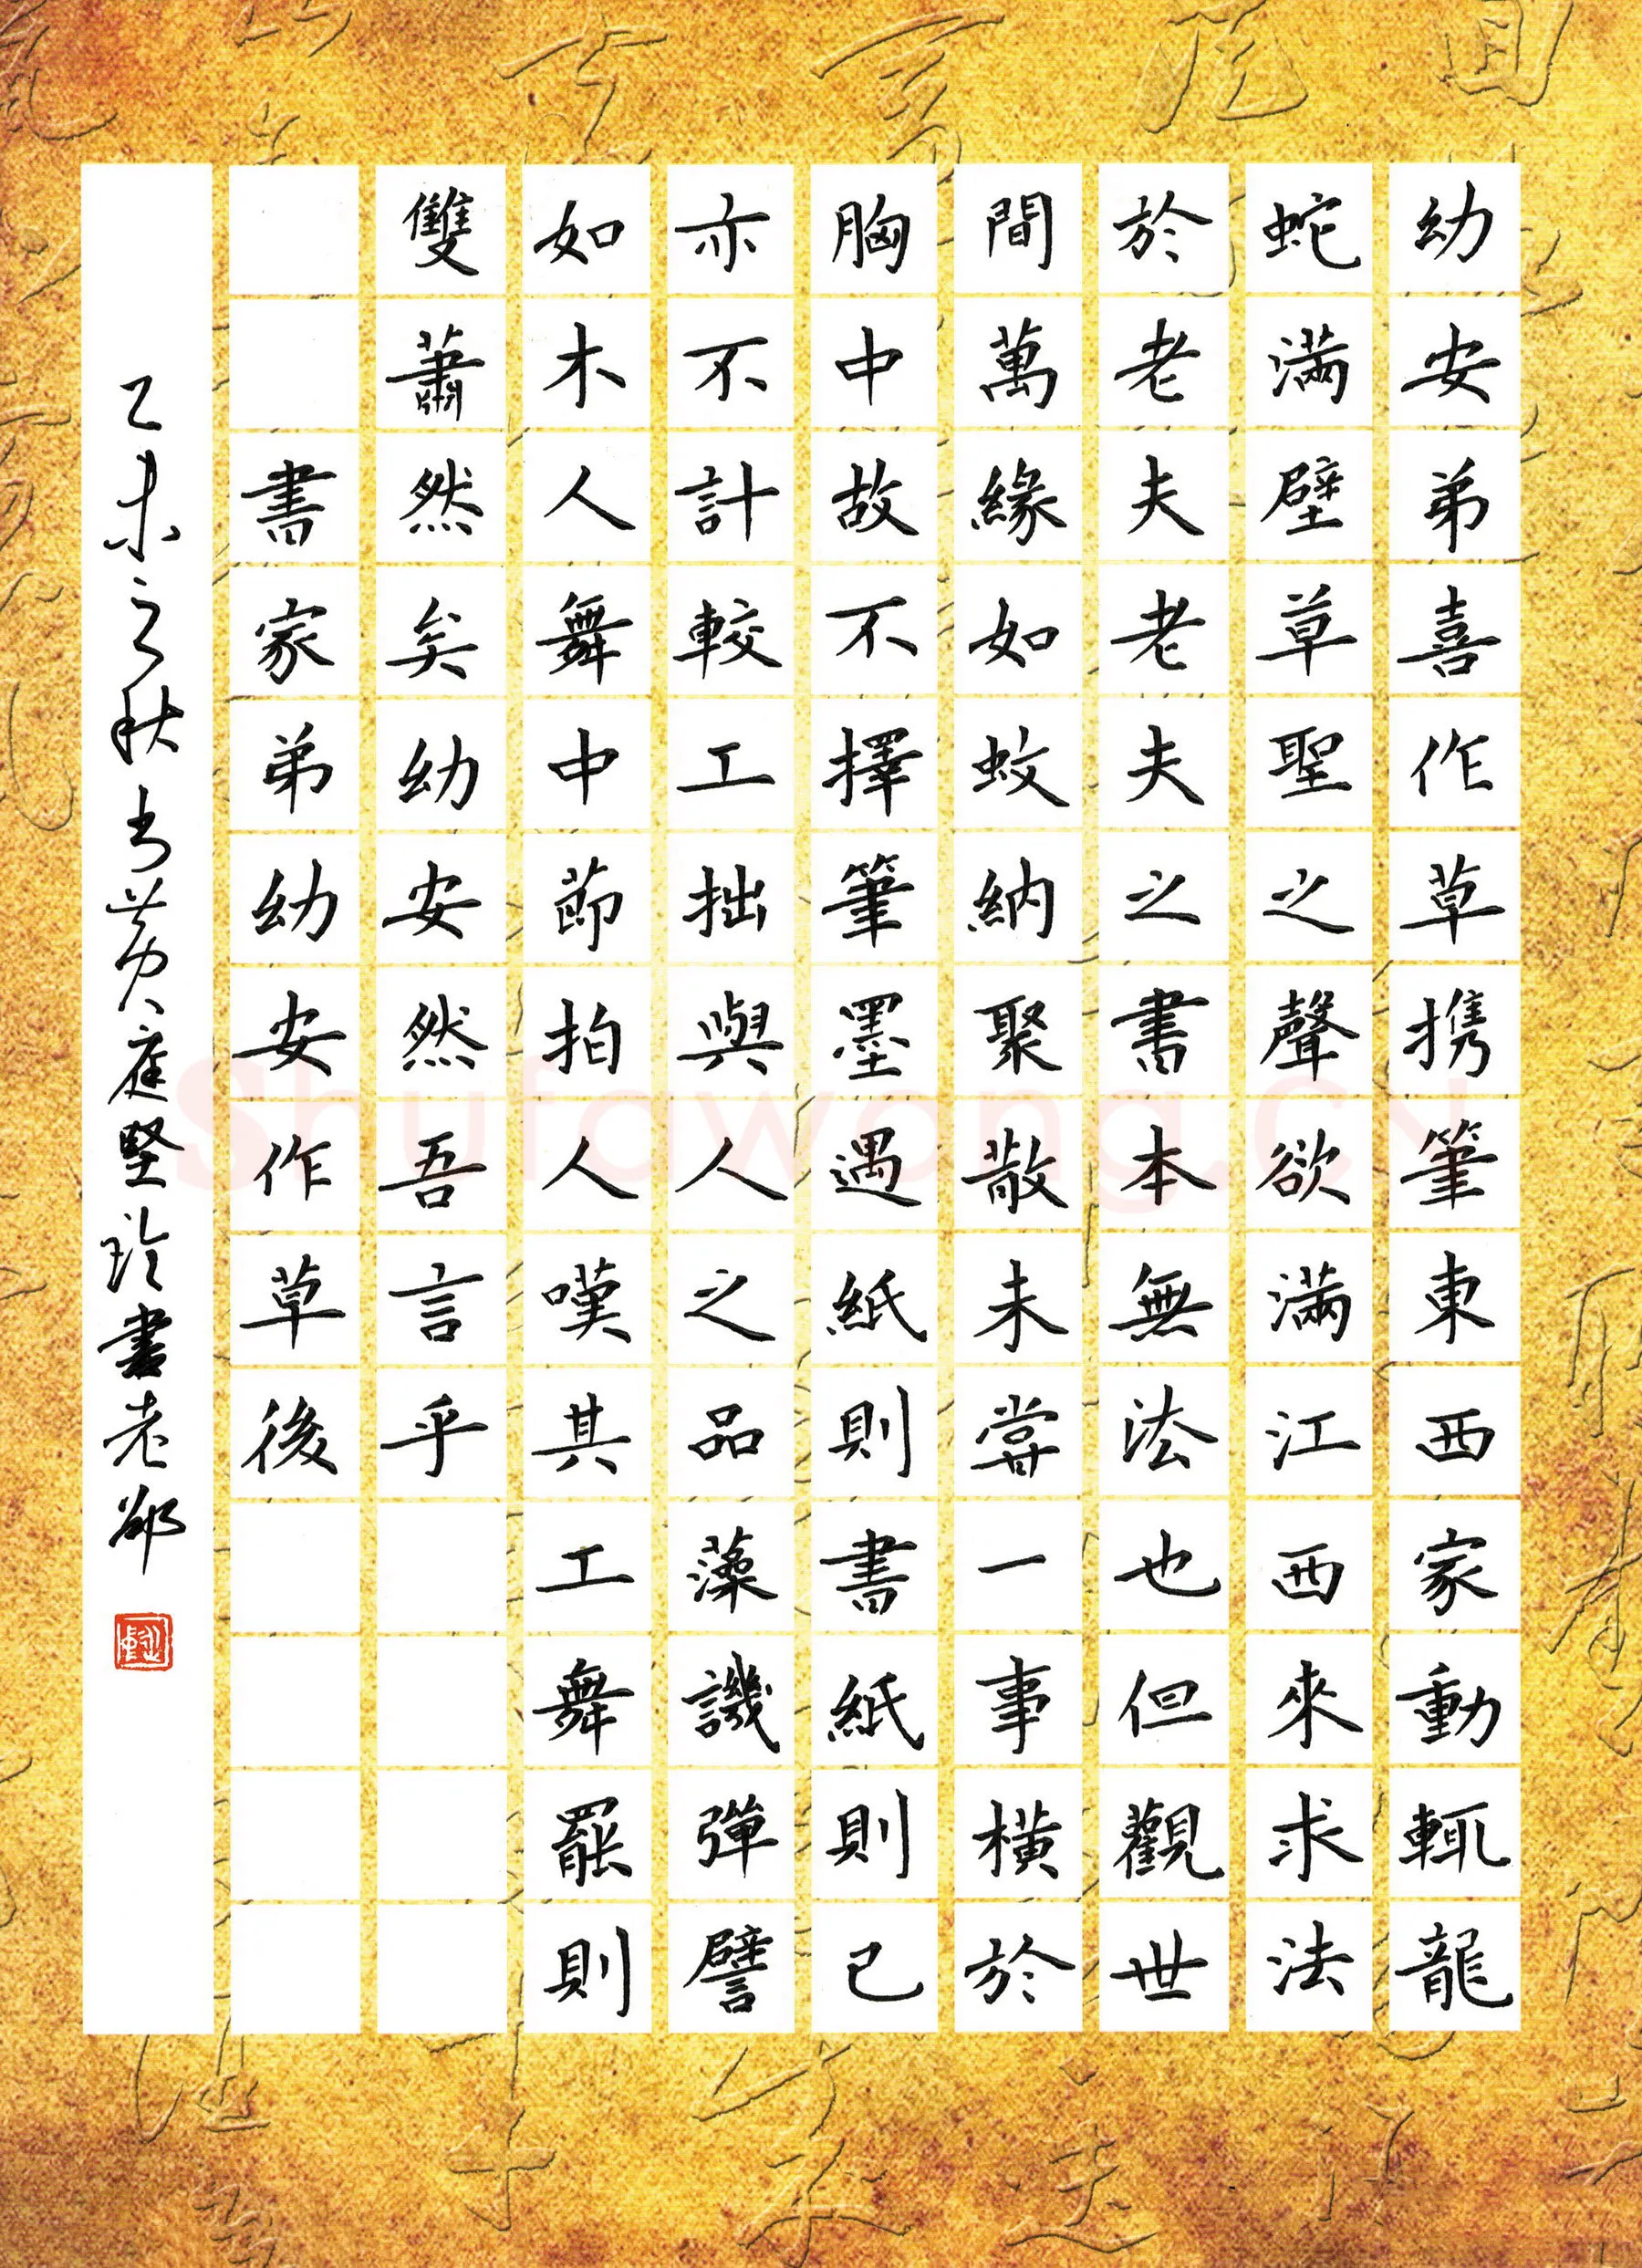 幼安弟喜作草携筆東西家動輒龍
蛇滿壁草聖之聲欲滿江西來求法
於老夫老夫之書本無法也但觀世
間萬緣如蚊納聚散未嘗一事橫於
胸中故不擇筆墨遇紙則書紙則已
亦不計較工拙與人之品藻譏彈譬
如木人舞中節拍人嘆其工舞罷則
雙蕭然矣幼安然吾言乎
書家弟幼安作草後
乙未之秋书黄庭堅论書老
Shufawang.CN